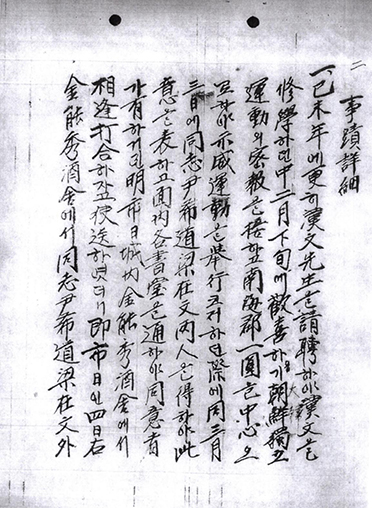 二
事蹟詳細
一、己未年에更히漢文先生을請聘하야漢文을
修學하던中二月下旬에歡喜하기朝鮮獨立
運動의密報을接하고南海郡一圓을中心으
로하야示威運動을擧行코저하던際에同三月
三日에同志尹希道梁在文兩人을得하야此
意을表하고面內各書堂을通하야同意者
가有하기로明市日城內金能秀酒舍에서
相逢打合하자고손送하엿더니即市日인四日右
金能秀酒舍에서同志尹希道梁在文外